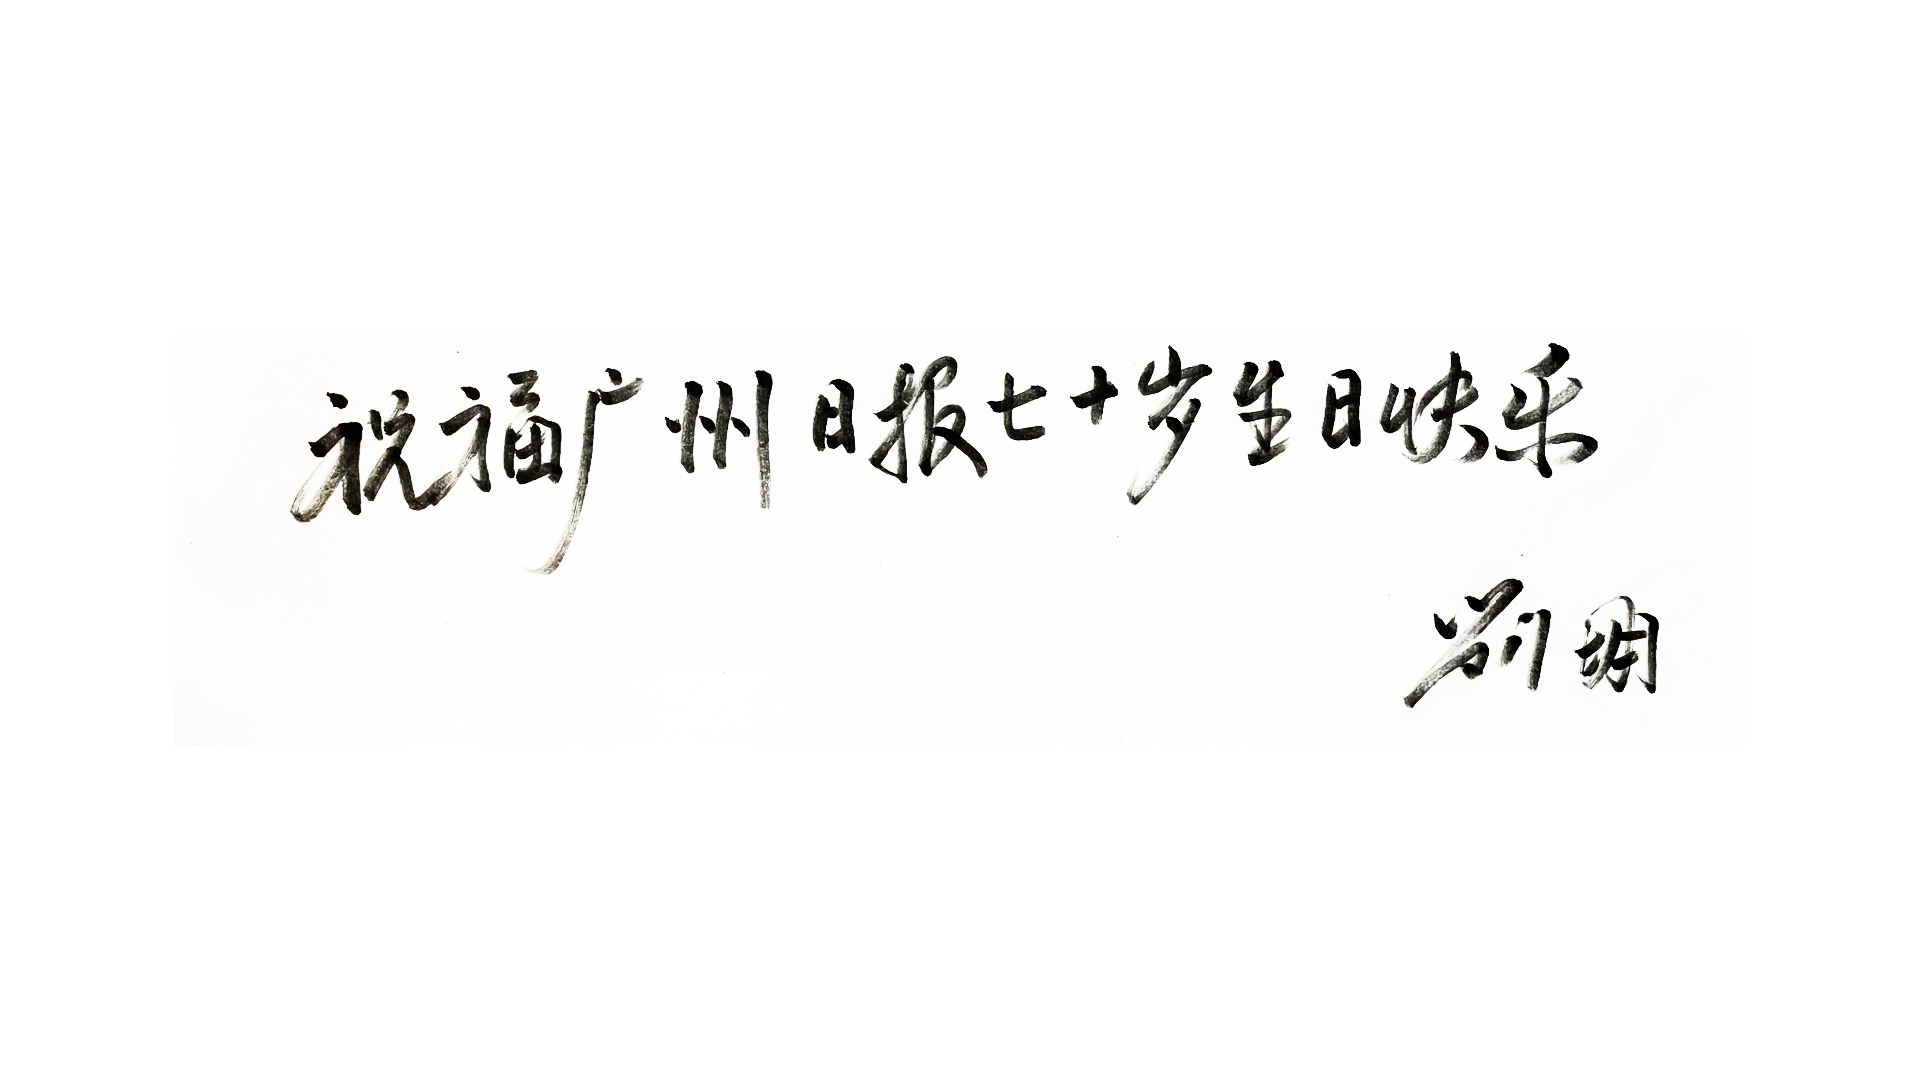 祝福广州日报七十岁生日快乐